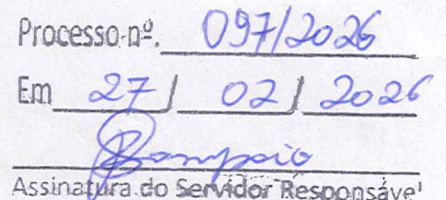 Processo nº. 097/2026
Em 27 / 02 / 2026
Sampaio
Assinatura do Servidor Responsável